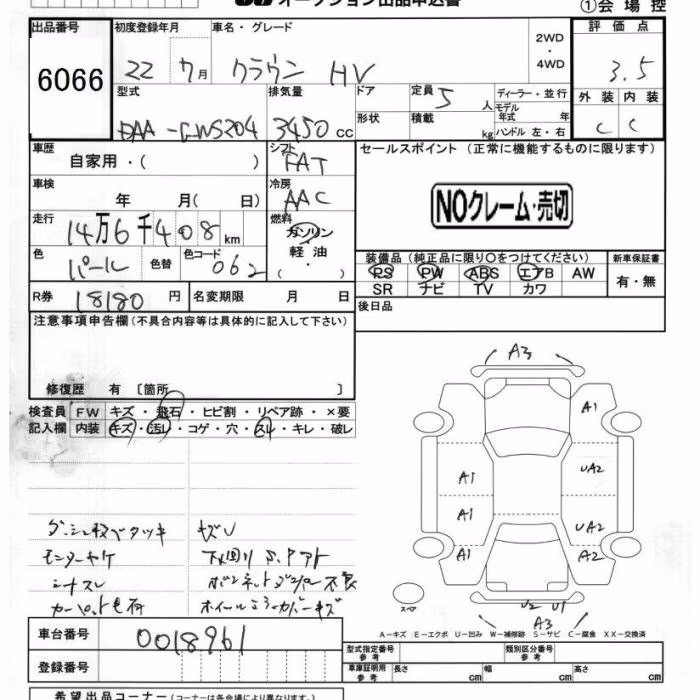 オークション出品申込書
①会場控
出品番号
6066
初度登録年月
車名・グレード
22 7月
クラウン HV
2WD
・
4WD
評価点
3.5
外装 内装
C C
型式
DAA-GWS204
排気量
3450 cc
ドア
形状
定員 5 人
積載 kg
ディーラー・並行
モデル年式 年
ハンドル 左・右
車歴
自家用・( )
シフト
FAT
セールスポイント (正常に機能するものに限ります)
NOクレーム・売切
車検
年 月( 日)
冷房
AAC
走行
14万6千408km
燃料
ガソリン
軽油
・
( )
色
パール
色替
色コード
062
装備品(純正品に限り〇をつけてください)
PS PW ABS エアB AW
SR ナビ TV カワ
新車保証書
有・無
R券
18180円
名変期限 月 日
後日品
注意事項申告欄(不具合内容等は具体的に記入して下さい)
修復歴 有 〔箇所 〕
検査員記入欄
FW キズ・飛石・ヒビ割・リペア跡・×要
内装 キズ・汚レ・コゲ・穴・スレ・キレ・破レ
モニターヤケ
シートスレ
下廻りS、アト
A3
A1
A1
UA2
A1
UA2
A1
A2
U2 U1
A3
スペア
A-キズ E-エクボ U-凹み W-補修跡 S-サビ C-腐食 XX-交換済
車台番号
0018961
登録番号
型式指定番号
参考
類別区分番号
参考
車庫証明用
参考
長さ cm
幅 cm
高さ cm
希望出品コーナー(コーナーは各会場により異なります)